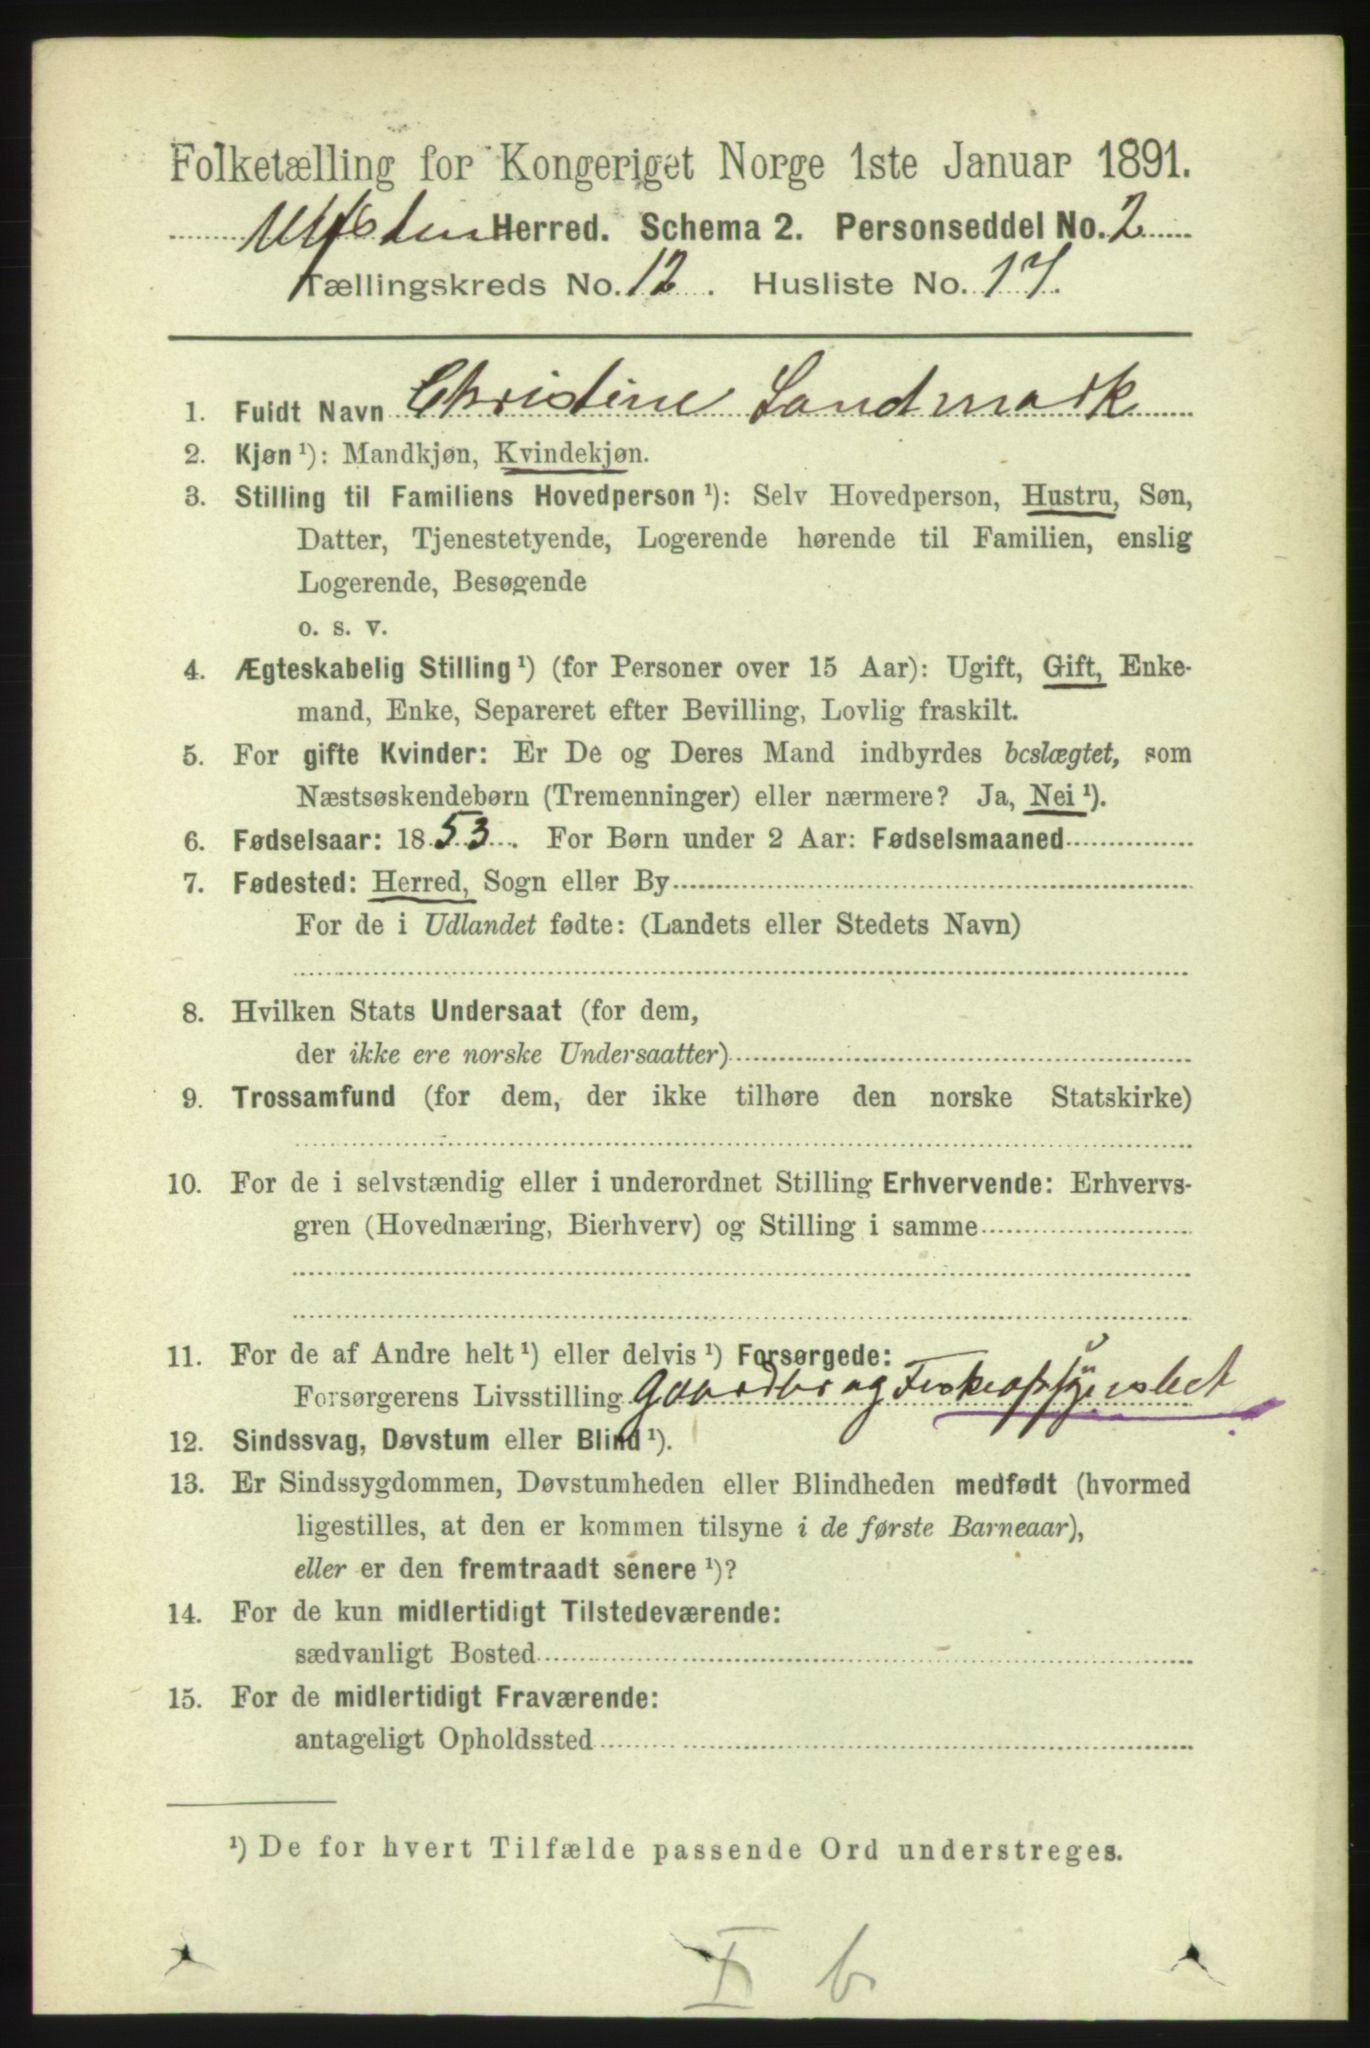 Folketælling for Kongeriget Norge 1ste Januar 1891.
Ulfsten Herred. Schema 2. Personseddel No. 2
Tællingskreds No. 12. Husliste No. 17.
1. Fuldt Navn Christine Landmark
2. Kjøn ¹): Mandkjøn, Kvindekjøn.
3. Stilling til Familiens Hovedperson ¹): Selv Hovedperson, Hustru, Søn,
Datter, Tjenestetyende, Logerende hørende til Familien, enslig
Logerende, Besøgende
o. s. v.
4. Ægteskabelig Stilling ¹) (for Personer over 15 Aar): Ugift, Gift, Enke-
mand, Enke, Separeret efter Bevilling, Lovlig fraskilt.
5. For gifte Kvinder: Er De og Deres Mand indbyrdes beslægtet, som
Næstsøskendebørn (Tremenninger) eller nærmere? Ja, Nei ¹).
6. Fødselsaar: 1853. For Børn under 2 Aar: Fødselsmaaned
7. Fødested: Herred, Sogn eller By
For de i Udlandet fødte: (Landets eller Stedets Navn)
8. Hvilken Stats Undersaat (for dem,
der ikke ere norske Undersaatter)
9. Trossamfund (for dem, der ikke tilhøre den norske Statskirke)
10. For de i selvstændig eller i underordnet Stilling Erhvervende: Erhvervs-
gren (Hovednæring, Bierhverv) og Stilling i samme
11. For de af Andre helt ¹) eller delvis ¹) Forsørgede:
Forsørgerens Livsstilling Gaardbr og
12. Sindssvag, Døvstum eller Blind ¹).
13. Er Sindssygdommen, Døvstumheden eller Blindheden medfødt (hvormed
ligestilles, at den er kommen tilsyne i de første Barneaar),
eller er den fremtraadt senere ¹)?
14. For de kun midlertidigt Tilstedeværende:
sædvanligt Bosted
15. For de midlertidigt Fraværende:
antageligt Opholdssted
¹) De for hvert Tilfælde passende Ord understreges.
I b